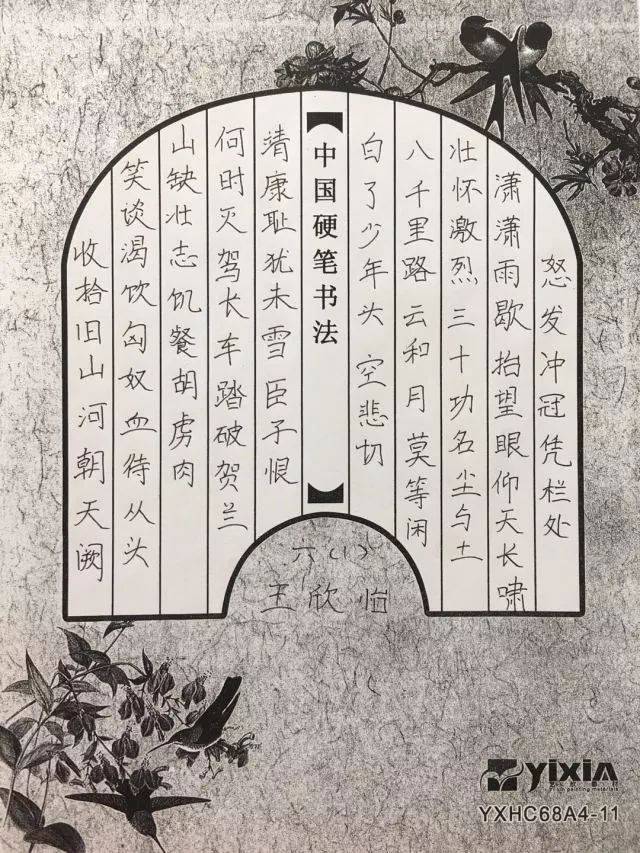 怒发冲冠凭栏处
潇潇雨歇抬望眼仰天长啸
壮怀激烈三十功名尘与土
八千里路云和月莫等闲
白了少年头空悲切
【中国硬笔书法】
靖康耻犹未雪臣子恨
何时灭驾长车踏破贺兰
山缺壮志饥餐胡虏肉
笑谈渴饮匈奴血待从头
收拾旧山河朝天阙
六(1)
王欣怡
yixin
YXHC68A4-11